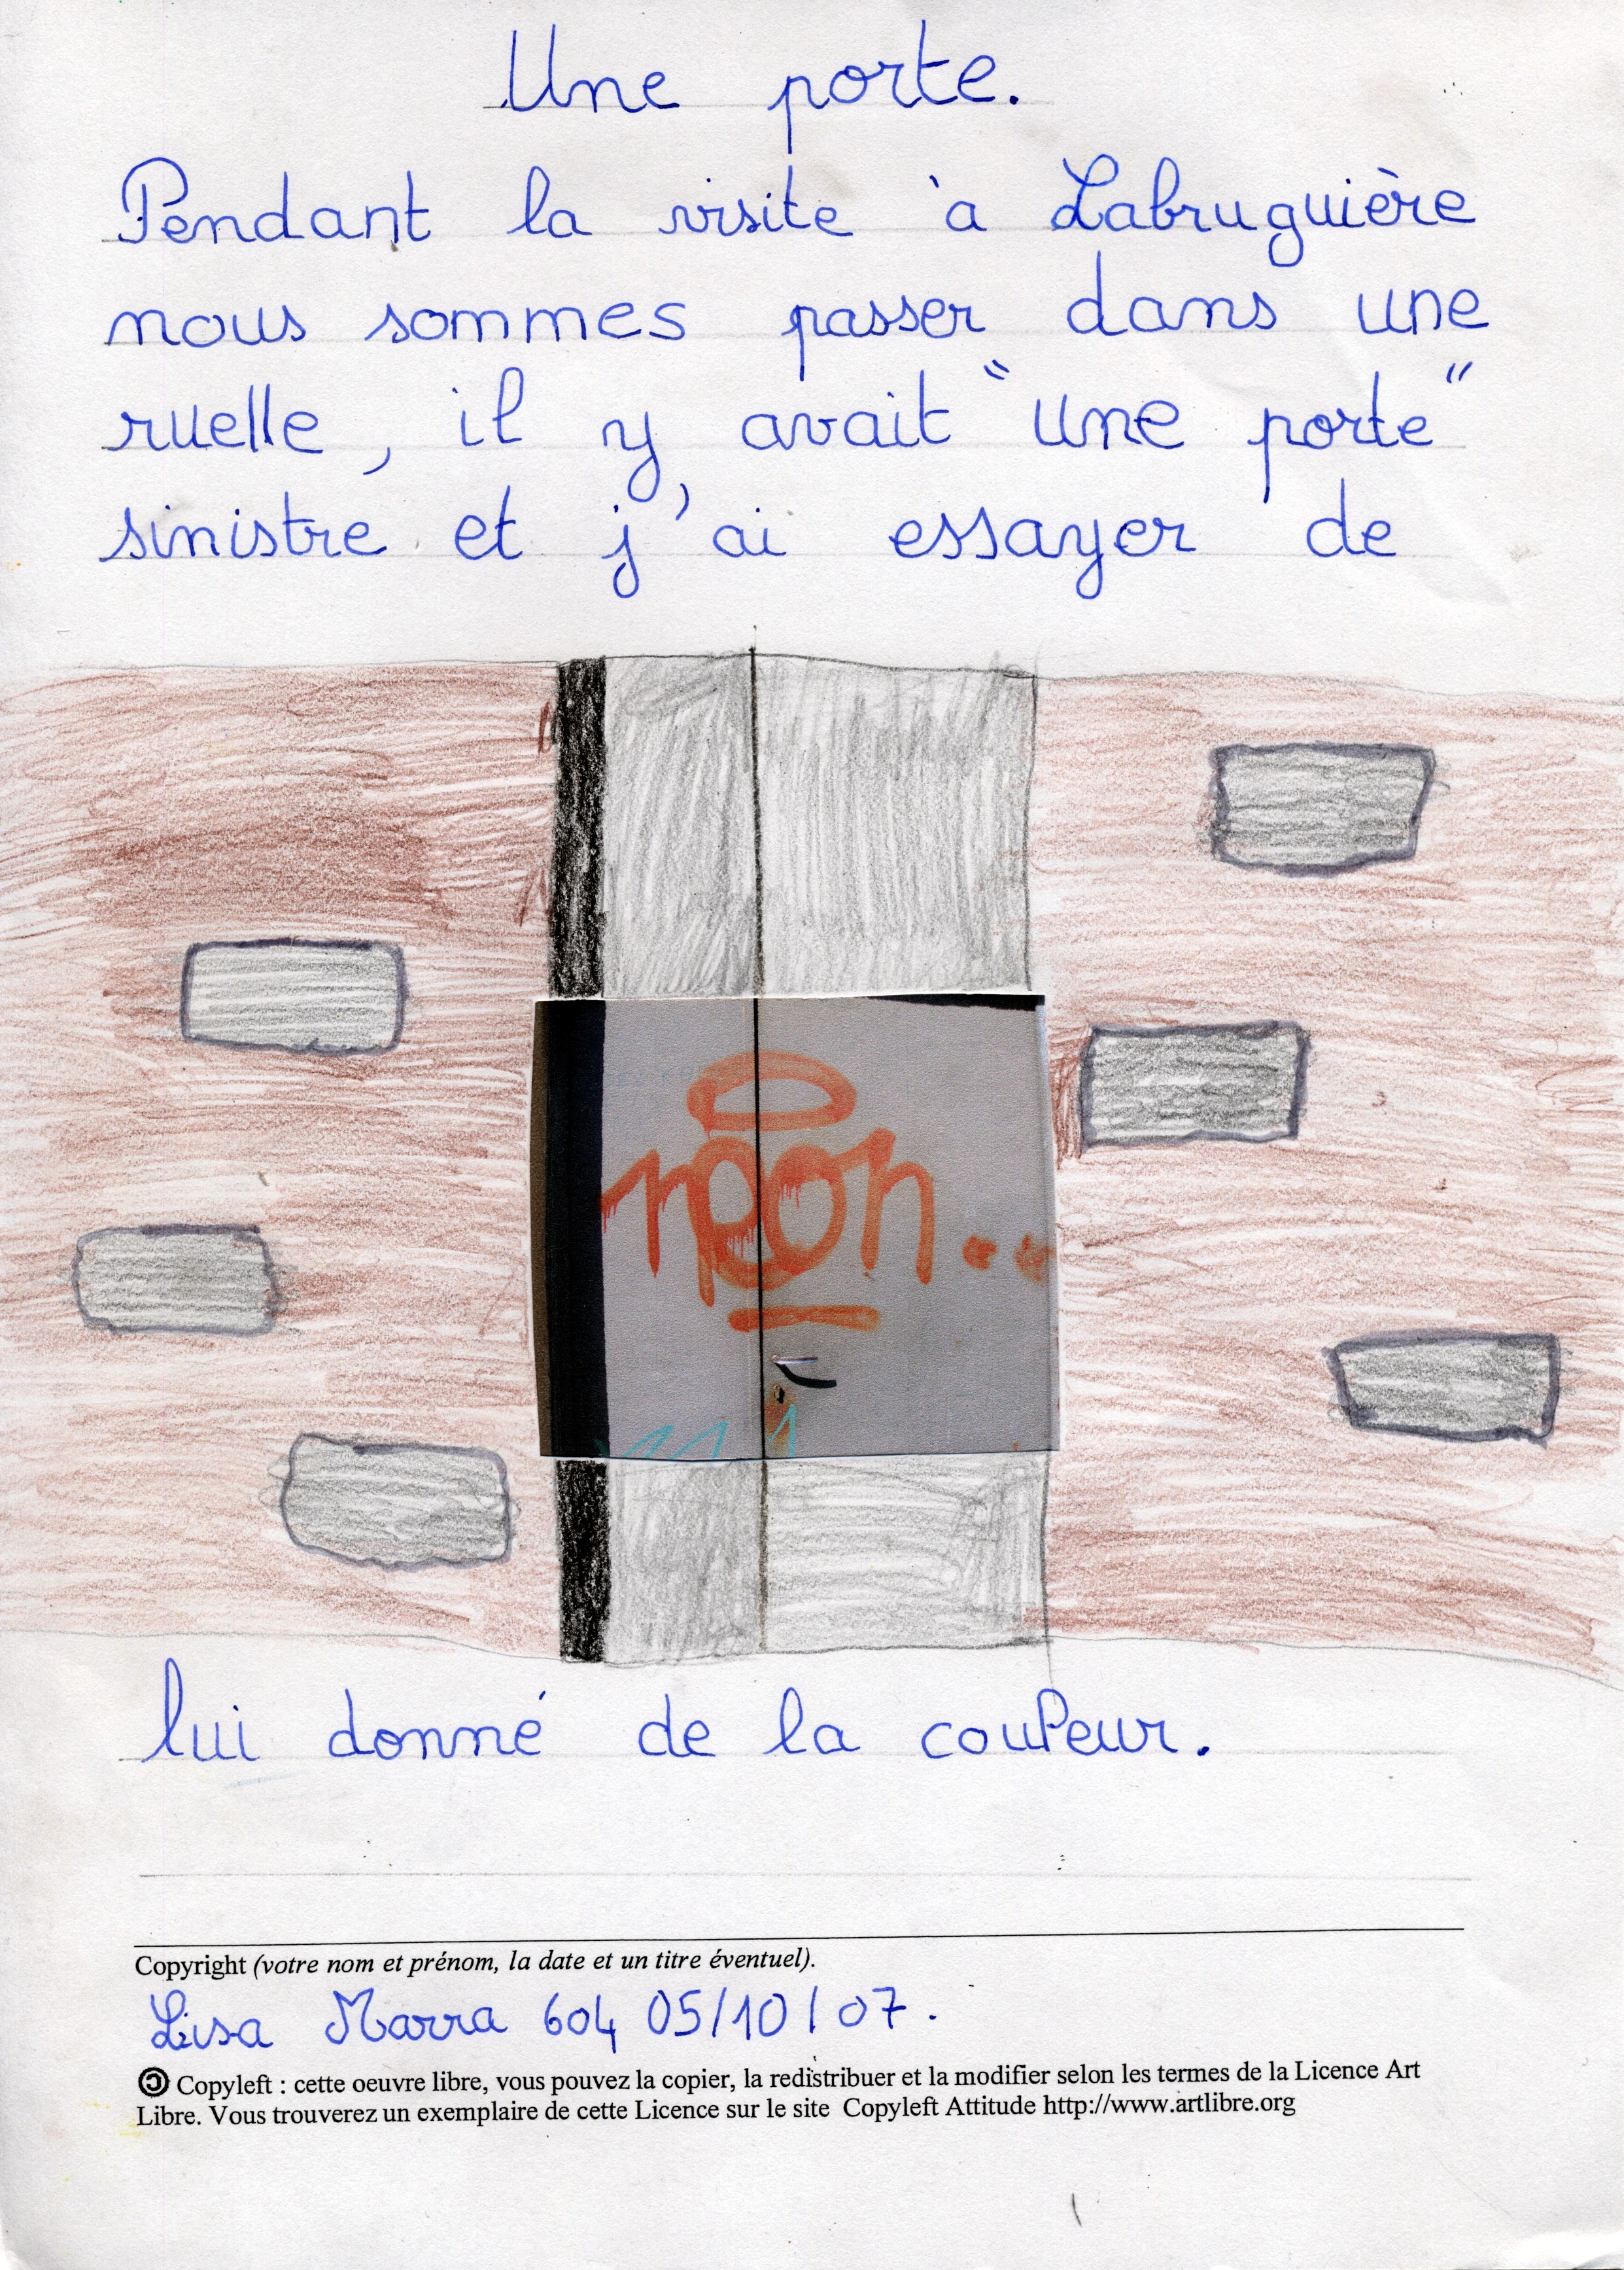 Une porte.
Pendant la visite à Labruguière
nous sommes passer dans une
ruelle, il y avait "une porte"
sinistre et j'ai essayer de
neon..
lui donné de la couleur.
Copyright (votre nom et prénom, la date et un titre éventuel).
Lisa Marra 604 05/10/07.
Copyleft : cette oeuvre libre, vous pouvez la copier, la redistribuer et la modifier selon les termes de la Licence Art
Libre. Vous trouverez un exemplaire de cette Licence sur le site Copyleft Attitude http://www.artlibre.org